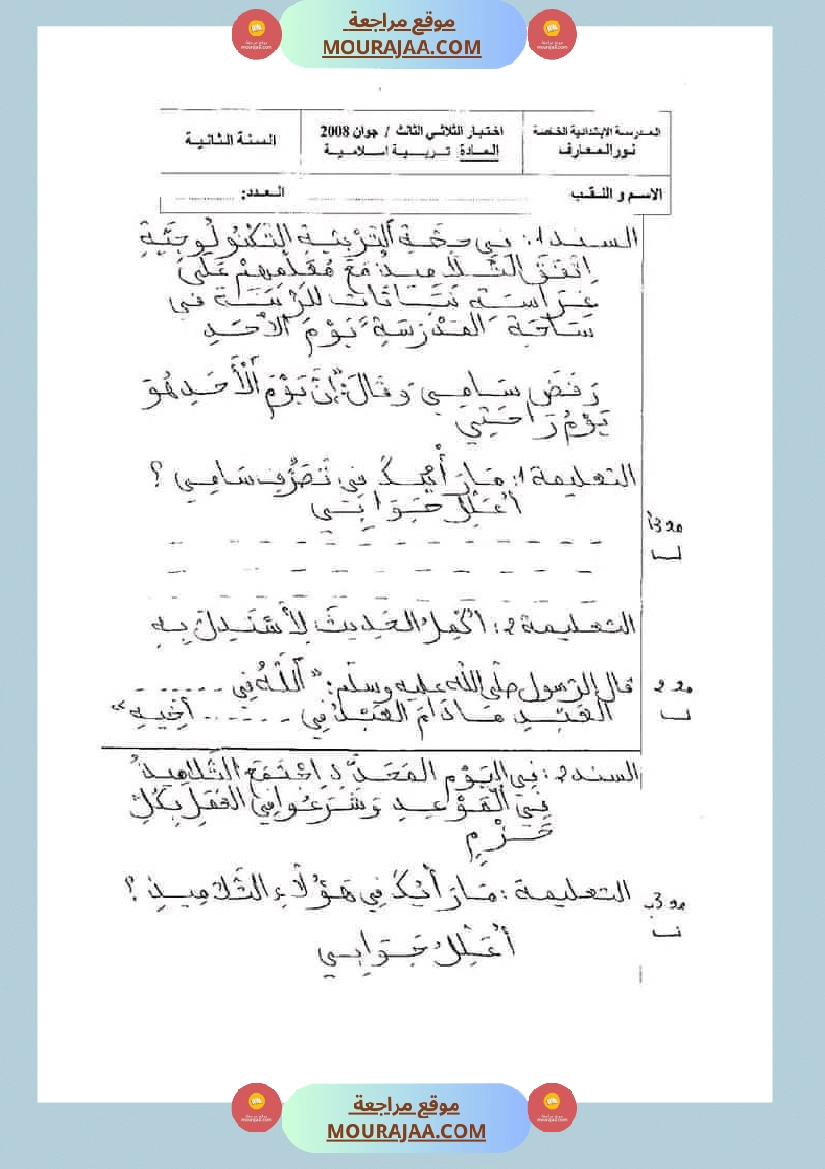 موقع مراجعة
MOURAJAA.COM
المدرسة الابتدائية الخاصة
نور المعارف
اختبار الثلاثي الثالث / جوان 2008
المادة: تربية اسلامية
السنة الثانية
الاسم و اللقب
العدد:
السند 1: في حِصَّةِ التَّرْبِيَةِ التِّكْنُولُوجِيَّةِ
اِتَّفَقَ التَّلَامِيذُ مَعَ مُعَلِّمِهِمْ عَلَى
غِرَاسَةِ نَبَاتَاتٍ لِلزِّينَةِ في
سَاحَةِ المَدْرَسَةِ يَوْمَ الأَحَدِ
رَفَضَ سَامِي وَقَالَ: "إِنَّ يَوْمَ الْأَحَدِ هُوَ
يَوْمُ رَاحَتِي
التعليمة 1: مَا رَأْيُكَ فِي تَصَرُّفِ سَامِي ؟
أُعَلِّلُ جَوَابِي
التعليمة 2: أُكْمِلُ الحَدِيثَ لِأَسْتَدِلَّ بِهِ
قال الرّسول صلّى الله عليه وسلّم: "اللَّهُ فِي ......
العَبْدِ مَا دَامَ العَبْدُ فِي ...... أَخِيهِ"
السند 2: فِي اليَوْمِ المُحَدَّدِ اجْتَمَعَ التَّلَامِيذُ
فِي المَوْعِدِ وَشَرَعُوا فِي العَمَلِ بِكُلِّ
حَزْمٍ
التعليمة: مَا رَأْيُكَ فِي هَؤُلَاءِ التَّلَامِيذِ ؟
أُعَلِّلُ جَوَابِي
موقع مراجعة
MOURAJAA.COM